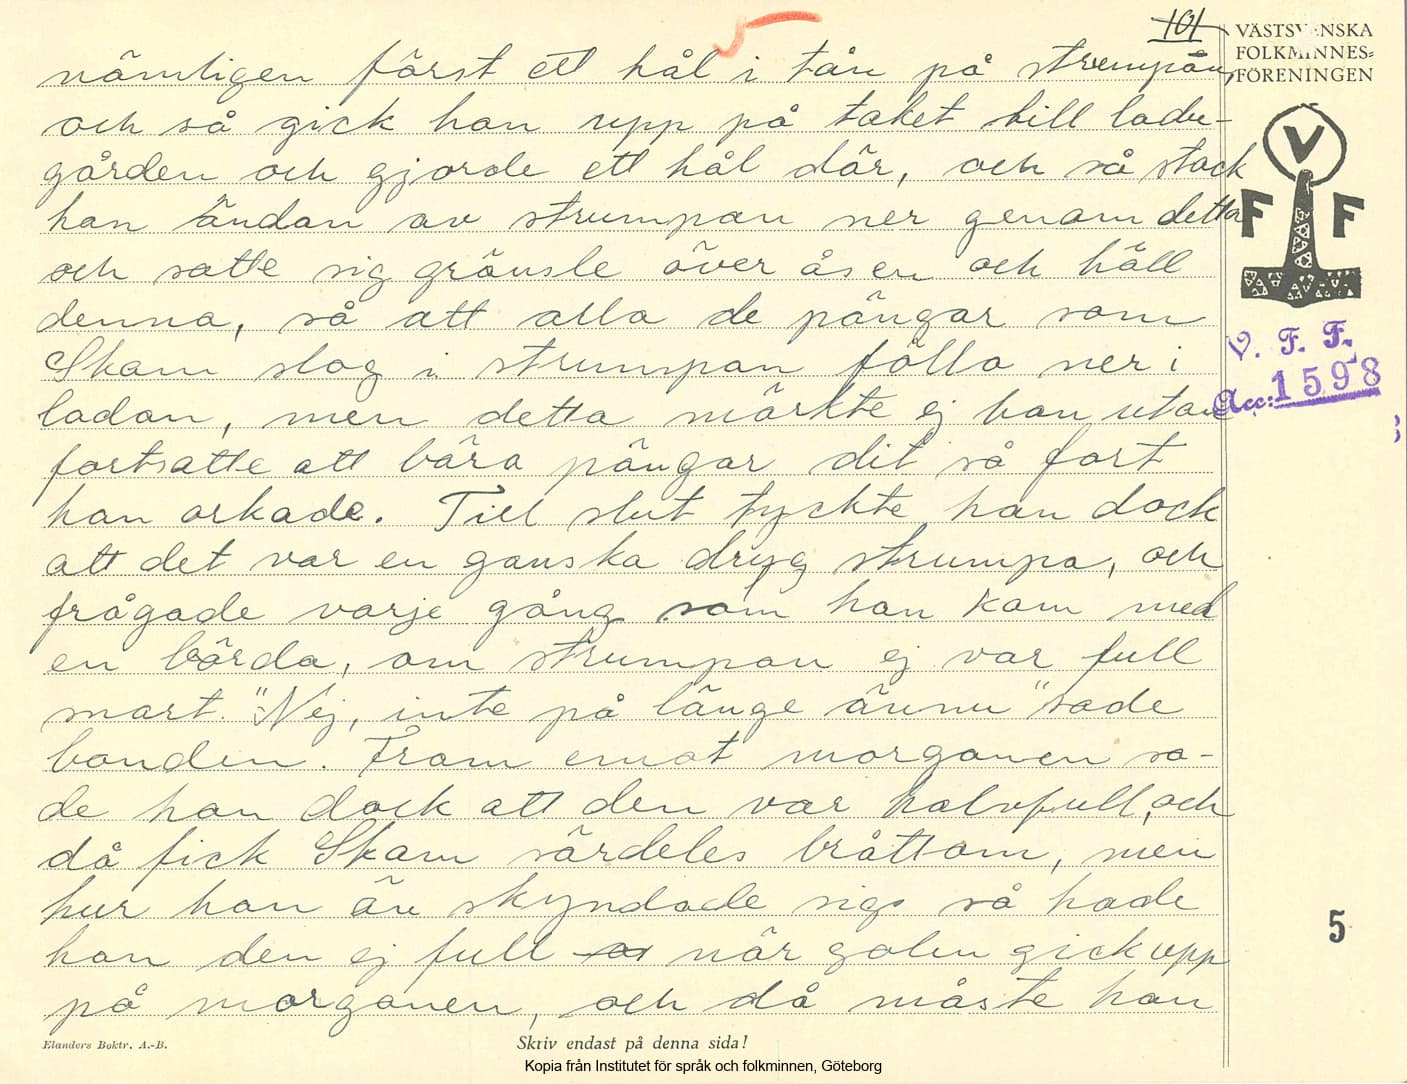 5
101
VÄSTSVENSKA
FOLKMINNES=
FÖRENINGEN
V
F F
V. F. F.
Acc: 1598
nämligen först ett hål i tån på strumpan,
och så gick han upp på taket till ladu-
gården och gjorde ett hål där, och så stack
han ändan av strumpan ner genom detta
och satte sig gränsle över åsen och höll
denna, så att alla de pängar som
Skam slog i strumpan fölla ner i
ladan, men detta märkte ej han utan
fortsatte att bära pängar dit så fort
han orkade. Till slut tyckte han dock
att det var en ganska dryg strumpa, och
frågade varje gång som han kom med
en börda, om strumpan ej var full
snart. "Nej, inte på länge ännu" sade
bonden. Fram emot morgonen sa-
de han dock att den var halvfull, och
då fick Skam särdeles bråttom, men
hur han än skyndade sig så hade
han den ej full när solen gick upp
på morgonen, och då måste han
5
Elanders Boktr. A.-B.
Skriv endast på denna sida!
Kopia från Institutet för språk och folkminnen, Göteborg